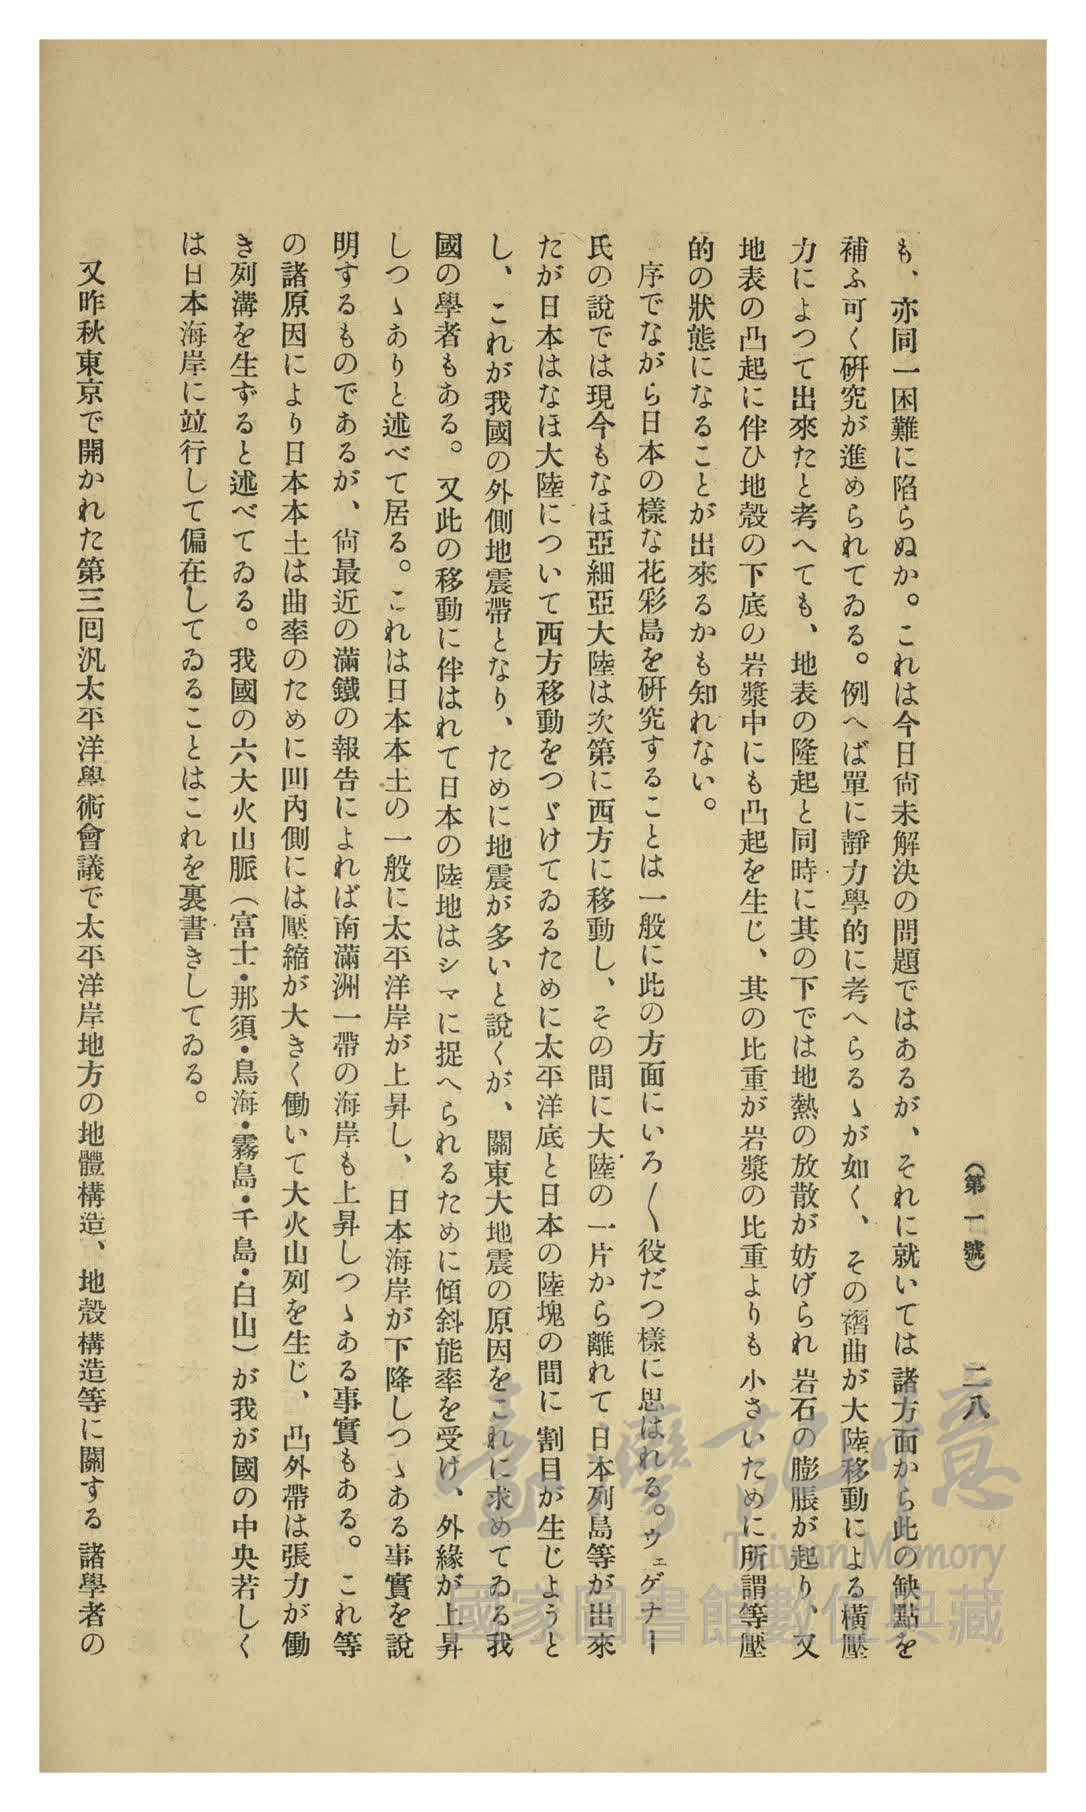 (第一號) 二八
も、亦同一困難に陷らぬか。これは今日尙未解決の問題ではあるが、それに就いては諸方面から此の缺點を
補ふ可く硏究が進められてゐる。例へば單に靜力學的に考へらるゝが如く、その褶曲が大陸移動による橫壓
力によつて出來たと考へても、地表の隆起と同時に其の下では地熱の放散が妨げられ岩石の膨脹が起り、又
地表の凸起に伴ひ地殼の下底の岩漿中にも凸起を生じ、其の比重が岩漿の比重よりも小さいために所謂等壓
的の狀態になることが出來るかも知れない。
序でながら日本の樣な花彩島を硏究することは一般に此の方面にいろ〱役だつ樣に思はれる。ウェゲナー
氏の說では現今もなほ亞細亞大陸は次第に西方に移動し、その間に大陸の一片から離れて日本列島等が出來
たが日本はなほ大陸について西方移動をつゞけてゐるために太平洋底と日本の陸塊の間に割目が生じようと
し、これが我國の外側地震帶となり、ために地震が多いと說くが、關東大地震の原因をこれに求めてゐる我
國の學者もある。又此の移動に伴はれて日本の陸地はシマに捉へられるために傾斜能率を受け、外緣が上昇
しつゝありと述べて居る。これは日本本土の一般に太平洋岸が上昇し、日本海岸が下降しつゝある事實を說
明するものであるが、尙最近の滿鐵の報告によれば南滿洲一帶の海岸も上昇しつゝある事實もある。これ等
の諸原因により日本本土は曲率のために凹內側には壓縮が大きく働いて大火山列を生じ、凸外帶は張力が働
き列溝を生ずると述べてゐる。我國の六大火山脈(富士・那須・鳥海・霧島・千島・白山)が我が國の中央若しく
は日本海岸に竝行して偏在してゐることはこれを裏書きしてゐる。
又昨秋東京で開かれた第三囘汎太平洋學術會議で太平洋岸地方の地體構造、地殼構造等に關する諸學者の
臺灣記憶
Taiwan Memory
國家圖書館數位典藏